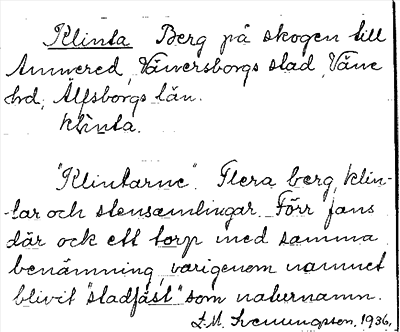 Klinta Berg på skogen till
Onnered, Vänersborgs stad, Väne
hd, Älfsborgs län.
klinta.
"Klintarne". Flera berg, klin-
tar och stensamlingar. Förr fans
där ock ett torp med samma
benämning, varigenom namnet
blivit "stadfäst" som naturnamn.
L.M. Svenungsson, 1936.